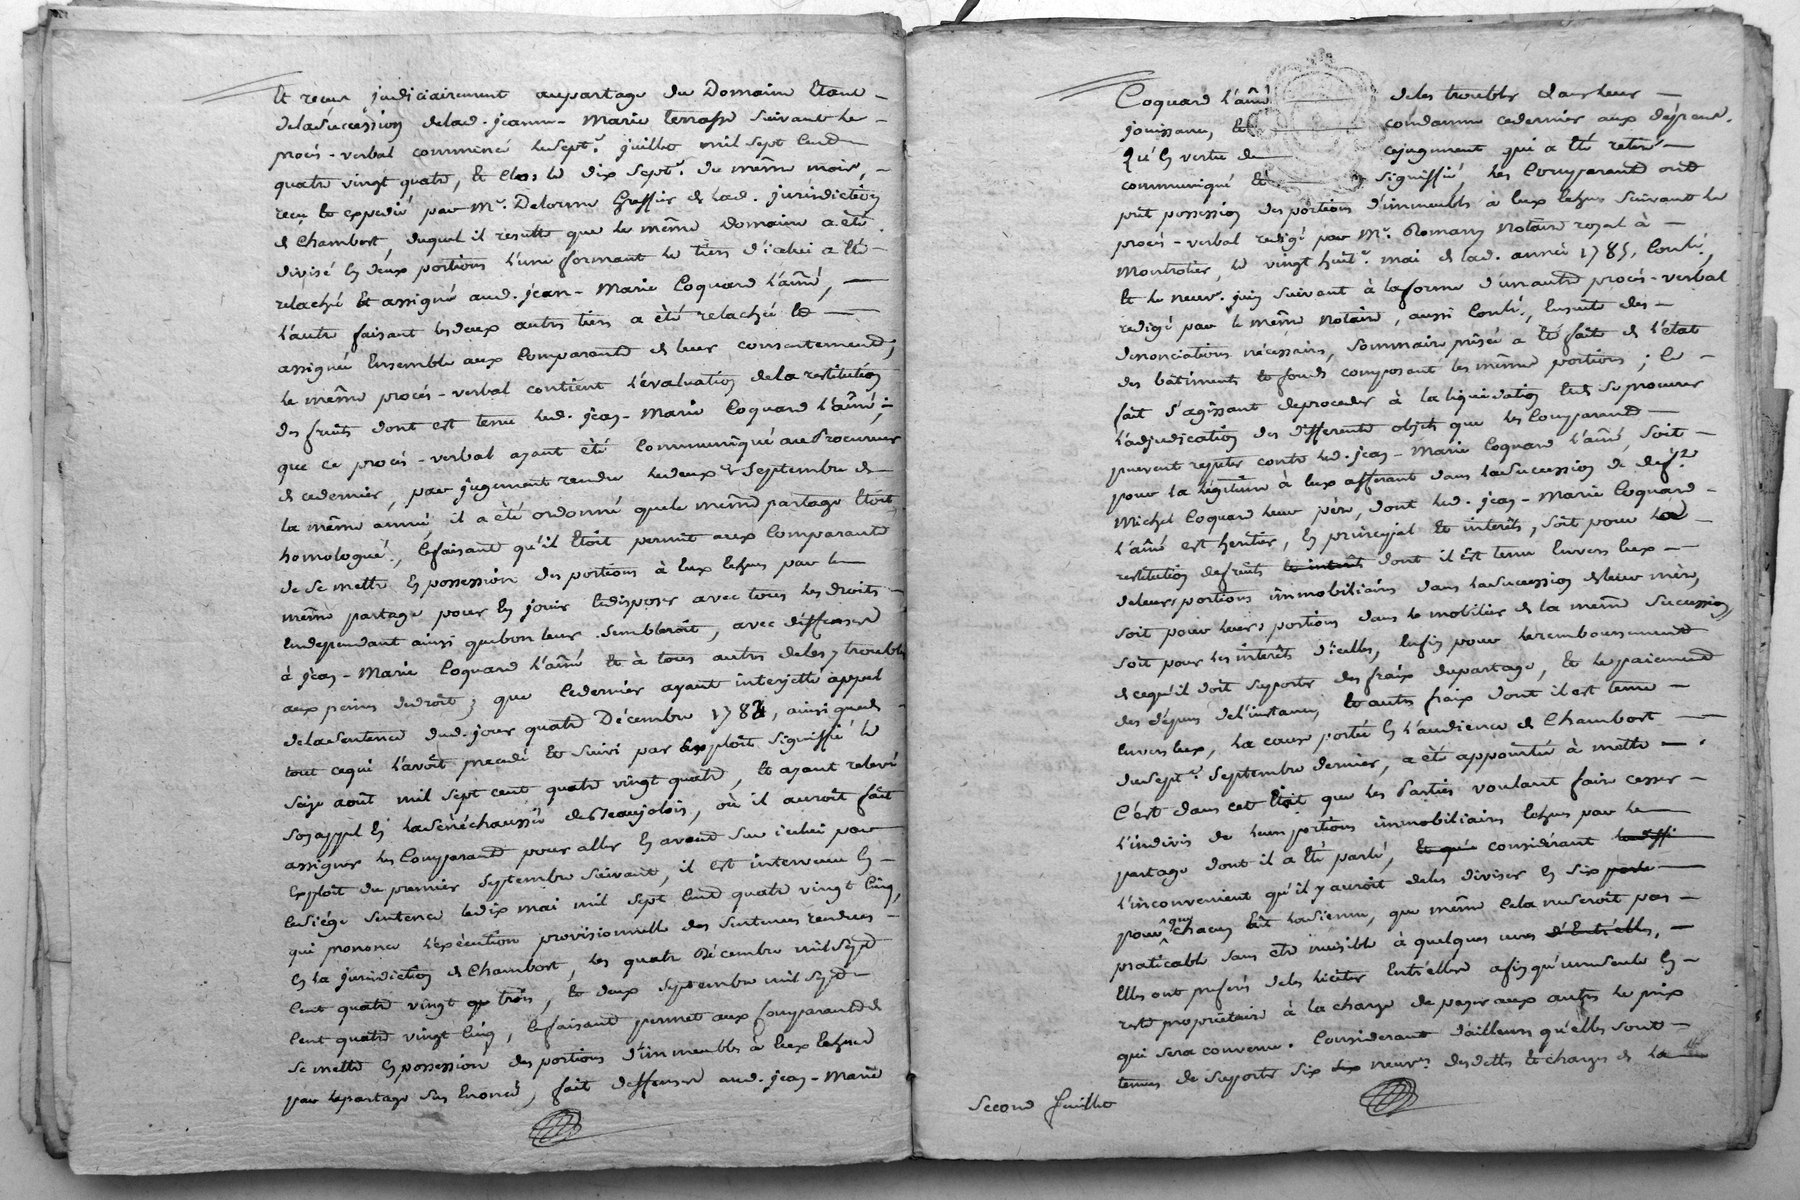 Et reçue judiciairement au partage du Domaine Etant
de la Succession de lad. jeanne-Marie terrasse Suivant le
procès-verbal commencé le sept.e juillet mil sept Cent
quatre vingt quatre, Et Clos le dix sept.e du même mois,
reçu Et expedié par M.e Delorme Greffier de lad. jurisdiction
de Chambort, duquel il resulte que le même domaine a été
divisé En deux portions l'une formant le tiers d'icelui a Eté
relaché Et assigné aud. jean-Marie Coquard l'aîné,
l'autre faisant les deux autres tiers a été relaché Et
assignée Ensemble aux Comparants de leur consentement;
le même procès-verbal contient l'évaluation de la restitution
des fruits dont est tenu led. jean-Marie Coquard l'aîné;
que ce procès-verbal ayant été Communiqué au Procureur
de ce dernier, par jugement rendu le deux.e Septembre de
la même année il a été ordonné que le même partage Etoit
homologué, Ce faisant qu'il Etoit permit aux Comparants
de se mettre En possession des portions à Eux Echues par le
même partage pour En jouir Et disposer avec tous les droits
En dependant ainsi que bon leur Sembleroit, avec deffenses
à jean-Marie Coquard l'aîné Et à tous autres de les y troubler
aux peines de droit; que Ce dernier ayant interjetté appel
de la Sentence dud. jour quatre Décembre 1783, ainsi que de
tout ce qui l'avoit precedé Et Suivi par Exploit Signiffié le
Seize août mil sept cent quatre vingt quatre, Et ayant relevé
Son appel En la Sénéchaussée de Beaujolois, où il auroit fait
assigner les Comparants pour aller En avant Sur icelui par
Exploit du premier Septembre Suivant, il est intervenu En
Ce Siége Sentence le dix mai mil Sept Cent quatre vingt Cinq,
qui prononce l'exécution provisionnelle des Sentences rendues
En la jurisdiction de Chambort, les quatre Décembre mil Sept
Cent quatre vingt trois, Et deux Septembre mil Sept
Cent quatre vingt Cinq, Ce faisant permet aux Comparants de
Se mettre En possession des portions d'immeubles à Eux Echues
par le partage Sus Enoncé, fait deffenses aud. jean-Marie
Coquard l'aîné de les troubler dans leur
jouissance, Et condamne ce dernier aux dépens.
Qu'En vertu de ce jugement qui a Eté retiré
communiqué Et Signiffié les Comparants ont
prit possession des portions d'immeubles à Eux Echues Suivant le
procès-verbal redigé par M.e Romany Notaire royal à
Montrotier, le vingt huit.e mai de lad. année 1785, Contlé,
Et le neuv.e juin Suivant à la forme d'un autre procès-verbal
redigé par le même Notaire, aussi Contlé, Ensuite des
denonciations nécessaires, Sommaire prisée a Eté faite de l'état
des bâtiments Et fonds composant les mêmes portions; Et
fait S'agissant de proceder à la liquidation Et de Se procurer
l'adjudication des differents objets que les Comparants
peuvent repeter contre led. jean-Marie Coquard l'aîné, Soit
pour la légitime à Eux afferant dans la Succession de deff.t
Michel Coquard leur père, dont led. jean-Marie Coquard
l'aîné est heritier, En principal Et interêts, Soit pour la
restitution de fruits Et interêts dont il Est tenu Envers Eux
de leurs portions immobiliaires dans la Succession de leur mère,
Soit pour leurs portions dans le mobilier de la même Succession,
Soit pour les interêts d'icelles, Enfin pour le remboursement
de ce qu'il doit Supporter des fraix du partage, Et le paiement
des dépens de l'instance, Et autres fraix dont il est tenu
Envers Eux, la cause portée En l'audience de Chambort
du sept.e Septembre dernier, a été appointée à mettre.
C'est dans cet Etat que les Parties voulant faire cesser
l'indivis de leurs portions immobiliaires Echues par le
partage dont il a Eté parlé, Et que considérant
l'inconvenient qu'il y auroit de les diviser En Six
pour que chacun Eût la Sienne, que même Cela ne Seroit pas
praticable Sans être nuisible à quelques unes d'Entr'elles,
Elles ont preferé de les liciter Entr'elles afin qu'une Seule En
reste propriétaire à la charge de payer aux autres le prix
qui Sera convenu. Considerant d'ailleurs qu'elles Sont
tenues de Supporter Six neuv.es des dettes Et charges de la
Second feuillet